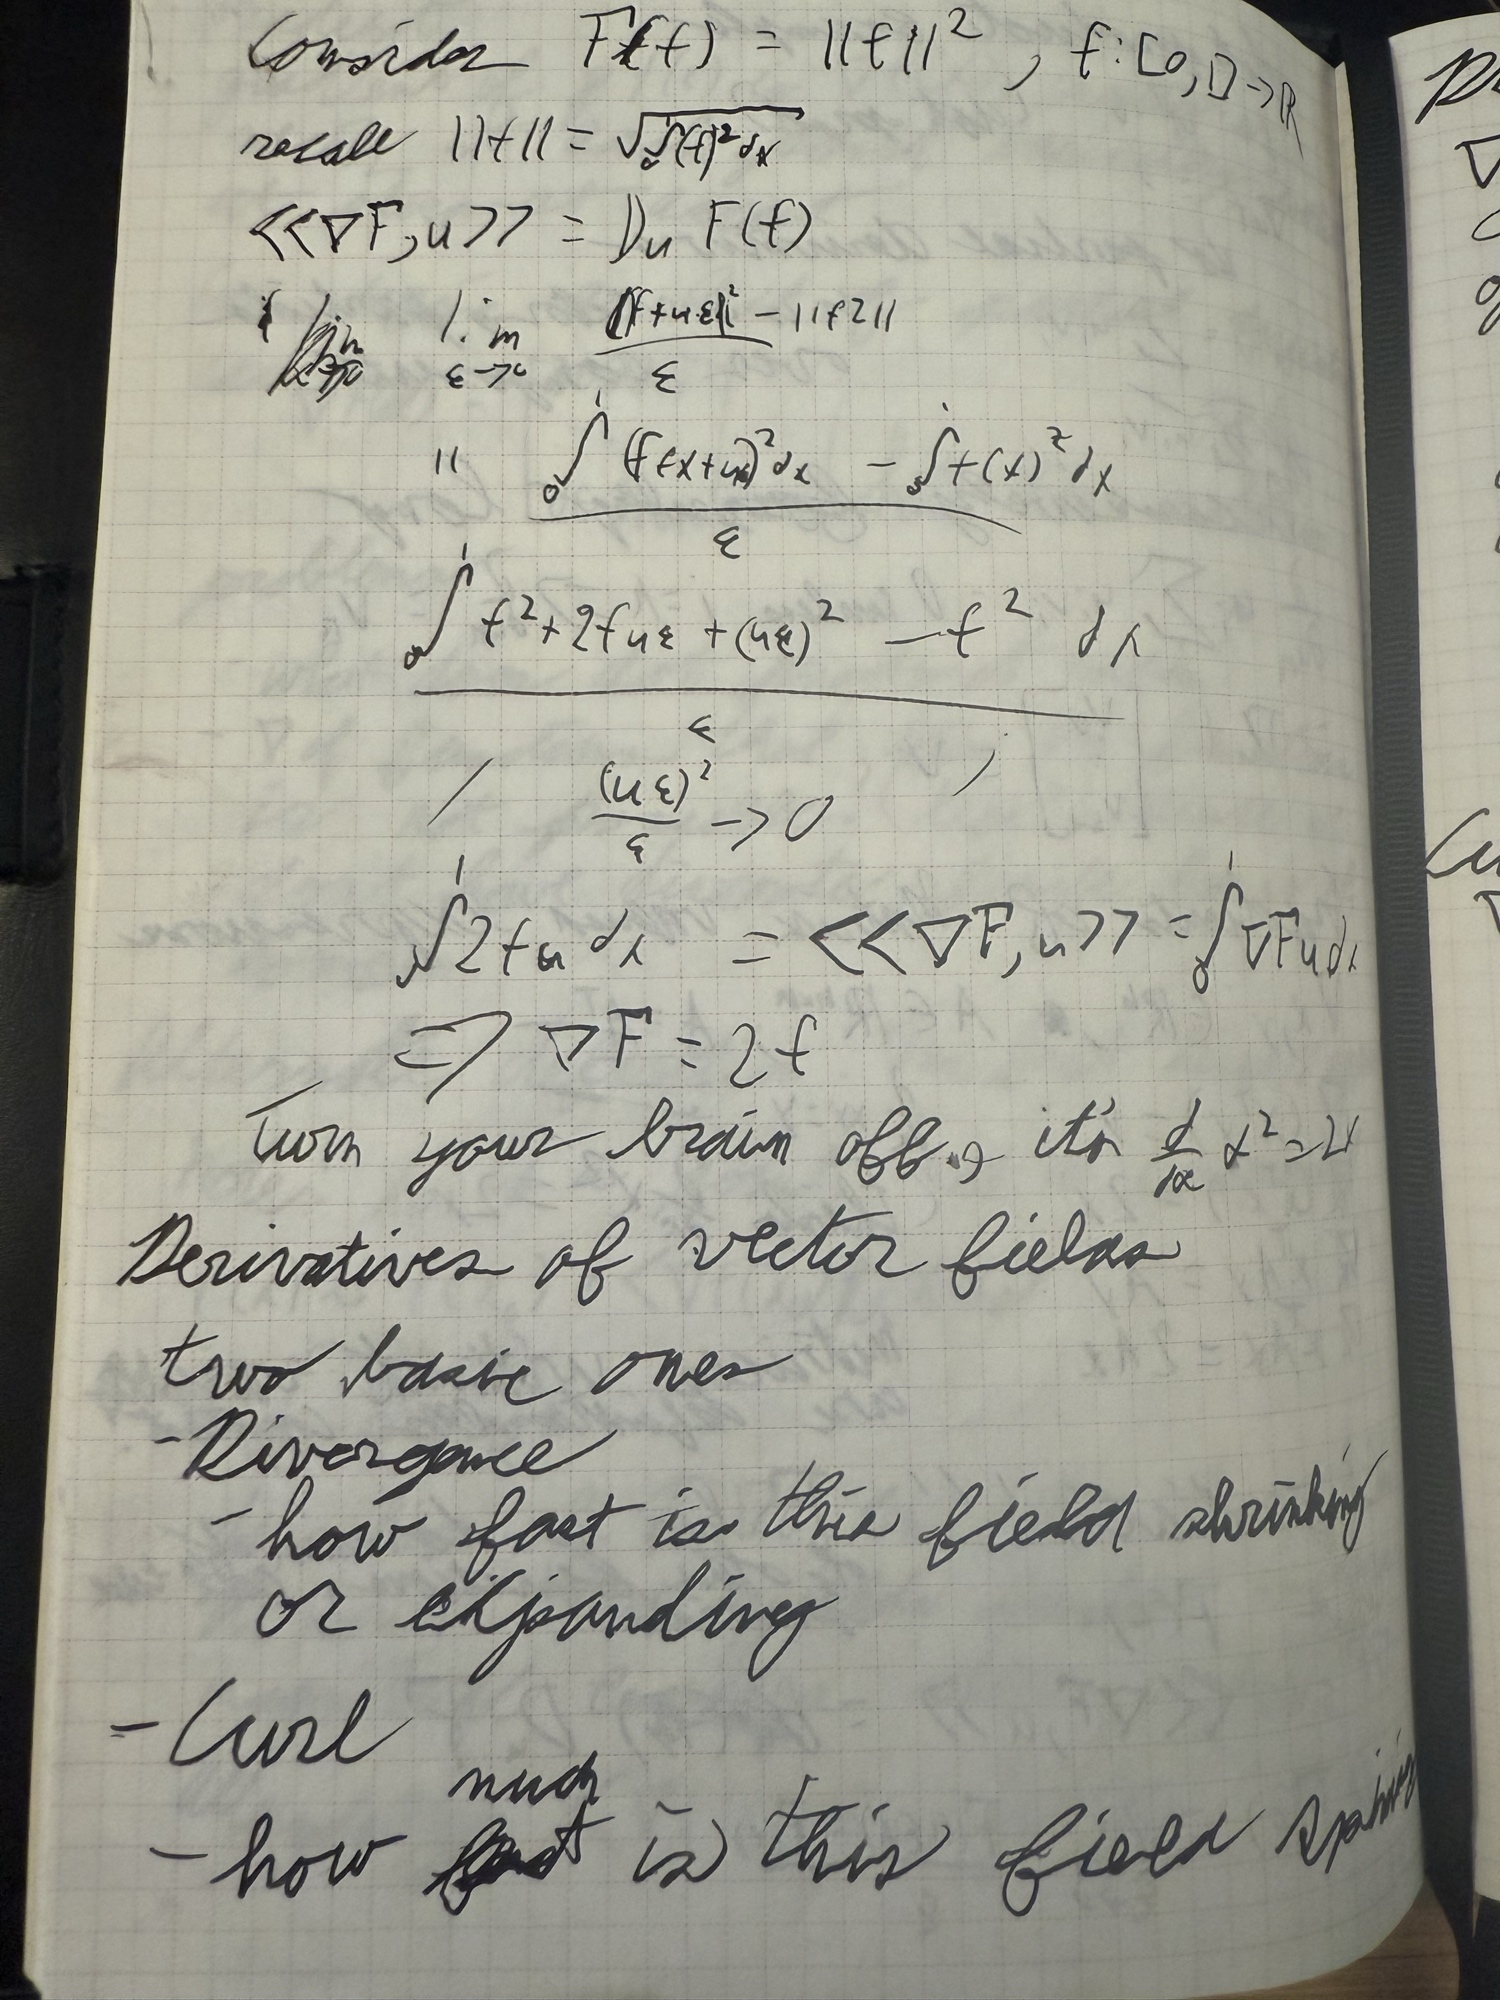 Consider F(f) = ||f||², f:[0,1]→ℝ
recall ||f|| = √∫₀¹(f)²dx
<<∇F,u>> = Dᵤ F(f)
lim ε→0 (||f+uε||² - ||f2||)/ε
" (∫₀¹ (f(x+uε)²dx - ∫₀¹ f(x)² dx)/ε
(∫₀¹ f² + 2fuε + (uε)² - f² dx)/ε
(uε)²/ε → 0
∫₀¹ 2fu dx = <<∇F,u>> = ∫₀¹ ∇Fu dx
⇒ ∇F = 2f
Turn your brain off, it's d/dx x² = 2x
Derivatives of vector fields
two basic ones
- Divergence
- how fast is this field shrinking
or expanding
- Curl
much
- how is this field